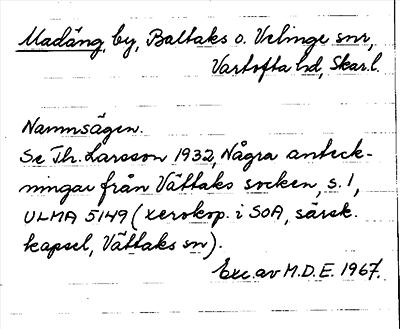 Madäng, by, Baltaks o. Velinge snr,
Vartofta hd, Skar. l.
Namnsägen.
Se Th. Larsson 1932, Några anteck-
ningar från Vättaks socken, s. 1,
ULMA 5149 (xerokop. i SOA, särsk.
kapsel, Vättaks sn).
Exc. av M.D.E. 1967.